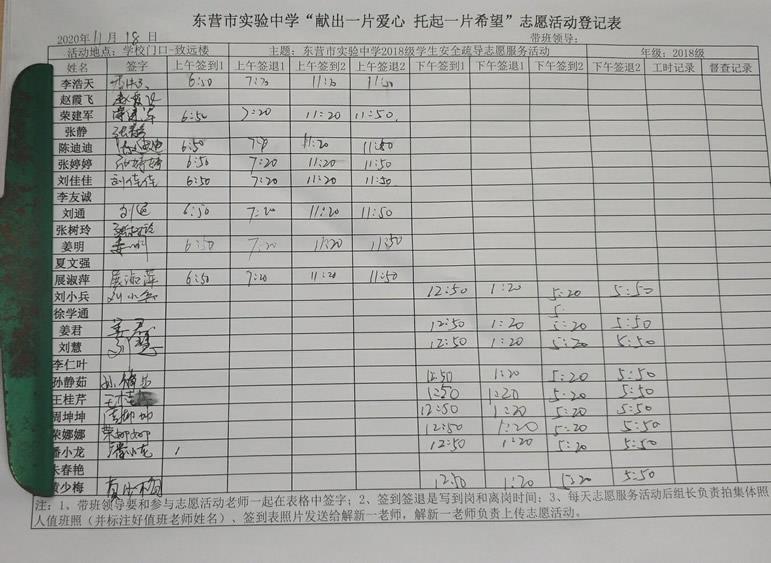 东营市实验中学“献出一片爱心 托起一片希望”志愿活动登记表
2020年11月18日 带班领导：
活动地点：学校门口-致远楼 主题：东营市实验中学2018级学生安全疏导志愿服务活动 年级：2018级
姓名 签字 上午签到1 上午签退1 上午签到2 上午签退2 下午签到1 下午签退1 下午签到2 下午签退2 工时记录 督查记录
李浩天 6:50 11:50
赵霞飞
荣建军 荣建军 6:50 7:20 11:20 11:50
张静 张静
陈迪迪 6:50 11:20 11:50
张婷婷 张婷婷 6:50 7:20 11:20 11:50
刘佳佳 刘佳佳 6:50 7:20 11:20 11:50
李友诚
刘通 刘通 6:50 7:20 11:20 11:50
张树玲
姜明 姜明 6:50 7:20 11:20 11:50
夏文强
展淑萍 展淑萍 6:50 7:20 11:20 11:50
刘小兵 刘小兵 12:50 1:20 5:20 5:50
徐学通 5:
姜君 姜君 12:50 1:20 5:20 5:50
刘慧 刘慧 12:50 1:20 5:20 5:50
李仁叶
孙静茹 12:50 1:20 5:20 5:50
王桂芹 1:50 1:20 5:20 5:50
周坤坤 12:50 1:20 5:20 5:50
荣娜娜 荣娜娜 12:50 1:20 5:20 5:50
潘小龙 潘小龙 12:50 1:20 5:20 5:50
朱春艳
黄少梅 12:50 1:20 5:20 5:50
注：1、带班领导要和参与志愿活动老师一起在表格中签字；2、签到签退是写到岗和离岗时间；3、每天志愿服务活动后组长负责拍集体照
人值班照（并标注好值班老师姓名）、签到表照片发送给解新一老师，解新一老师负责上传志愿活动。